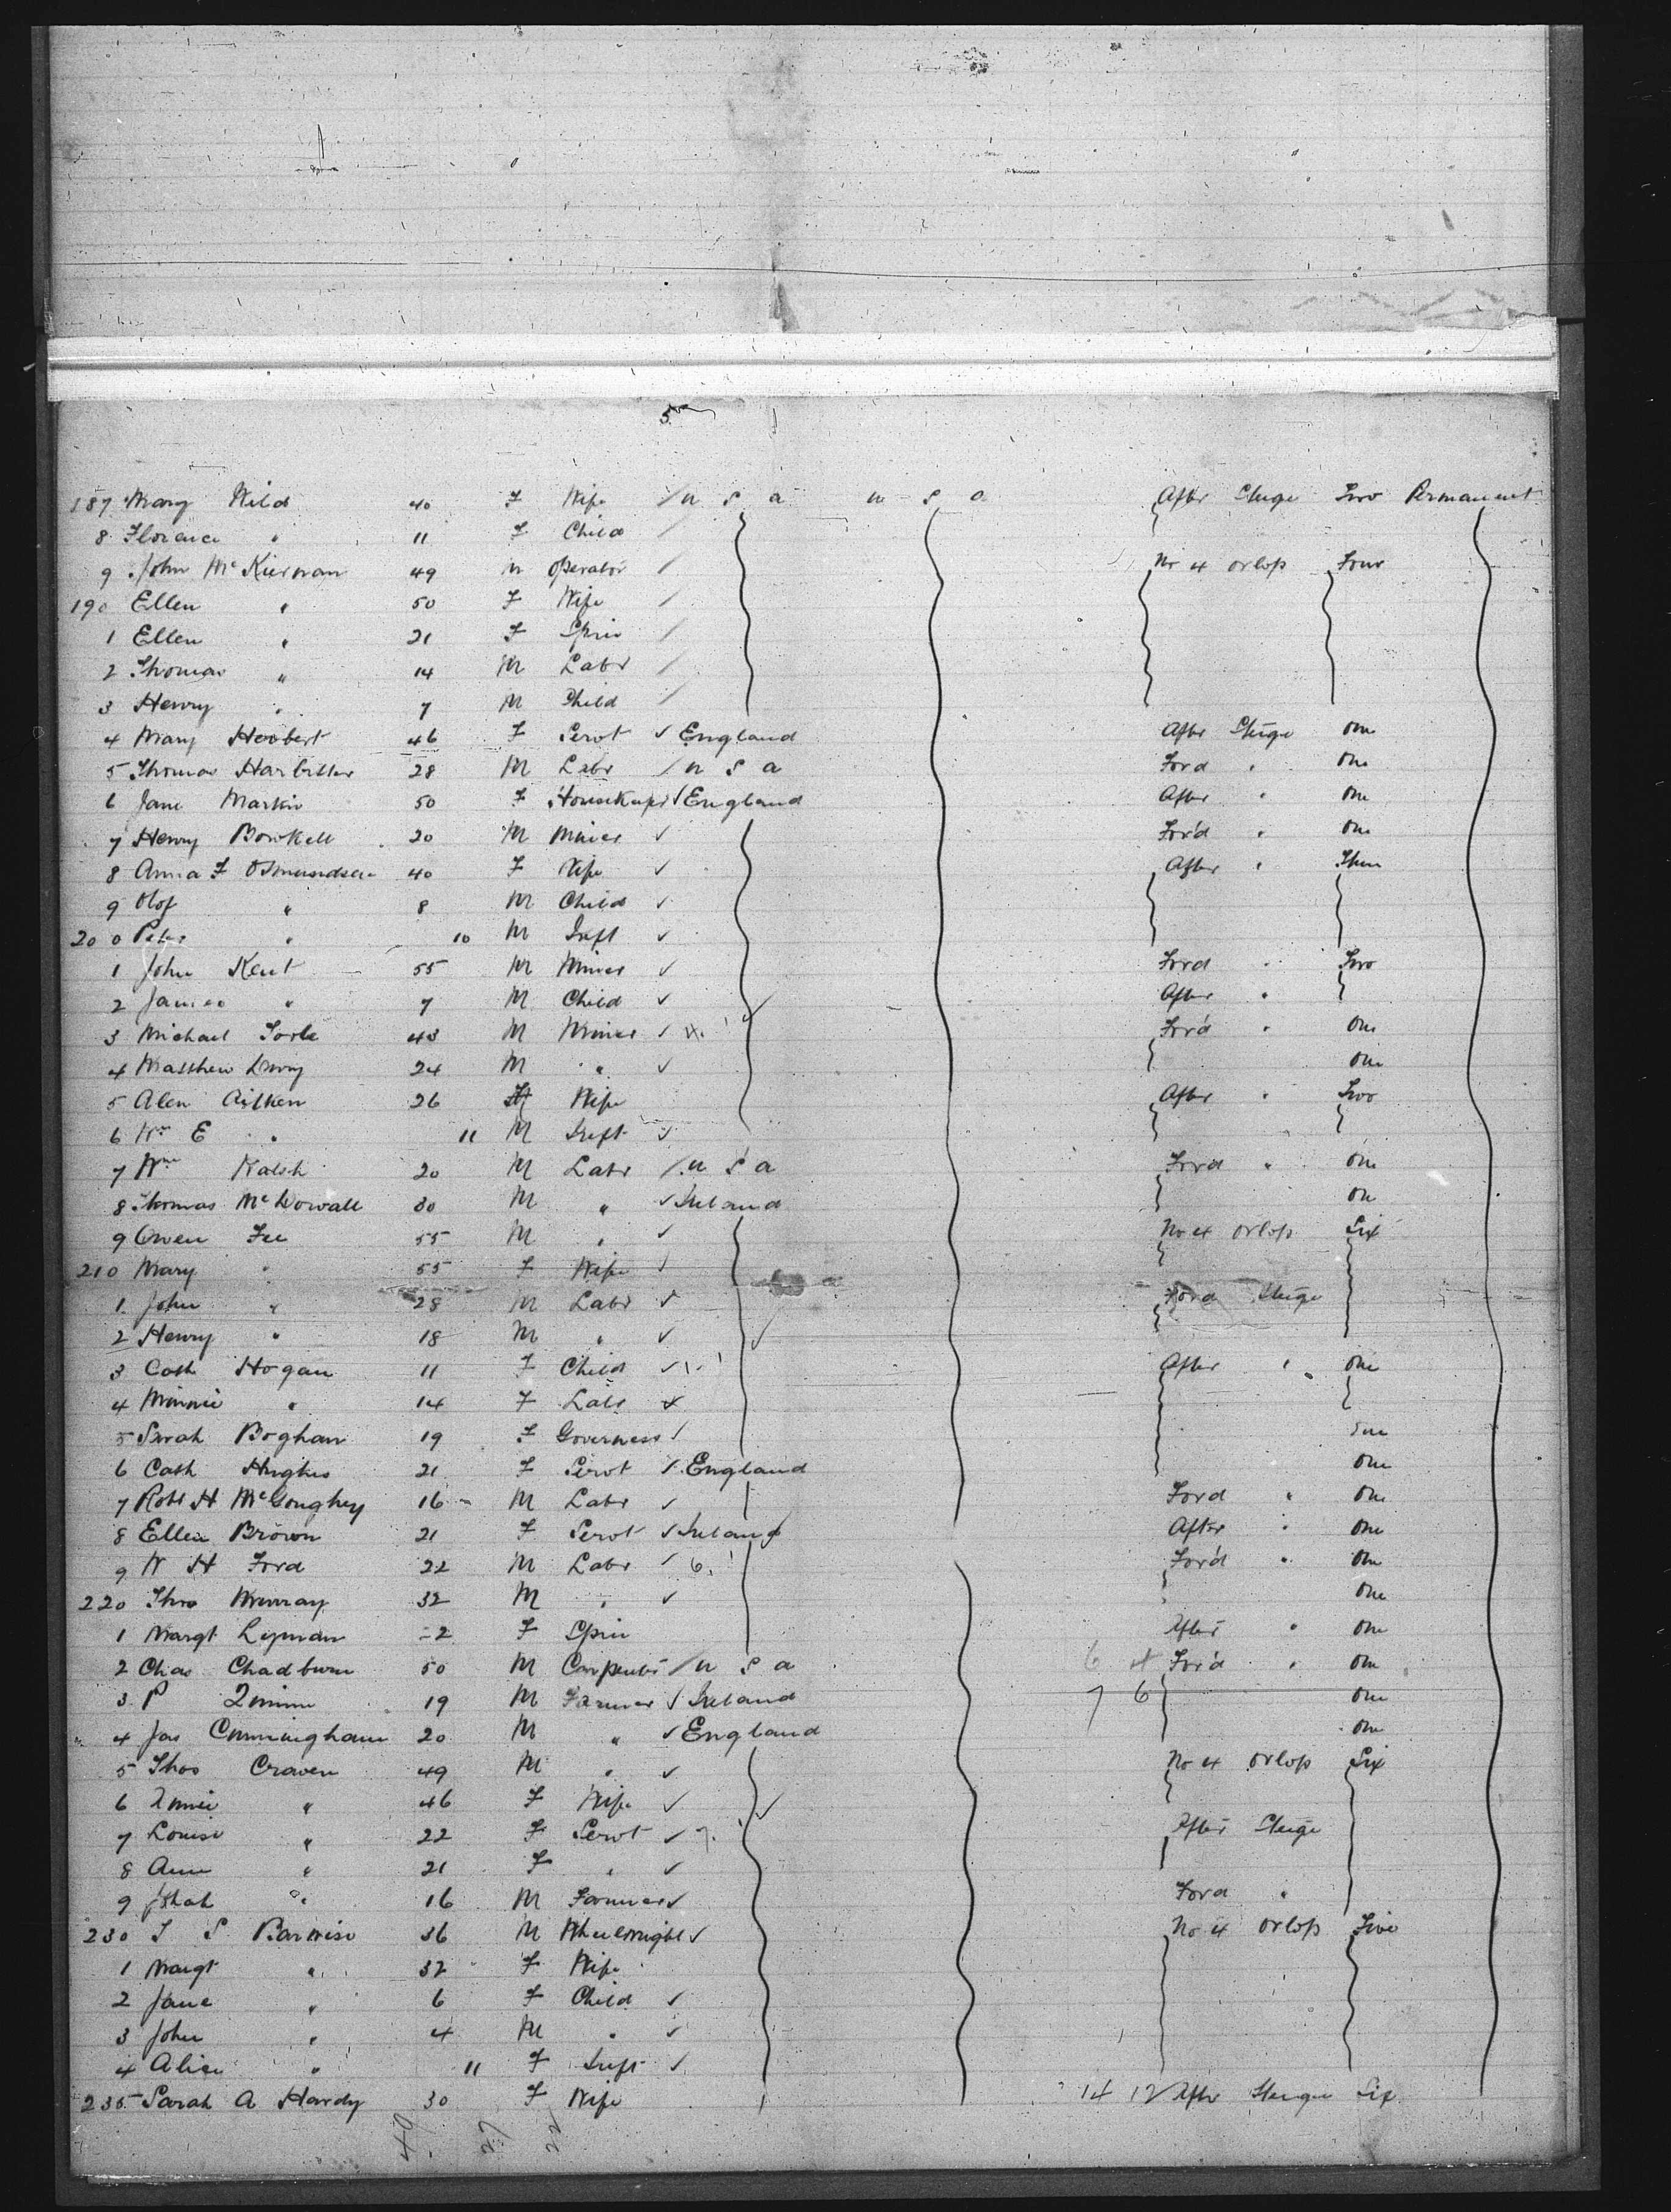 5
187 Mary Wild 40 F Wife / U S A U S A After Stege Two Permanent
8 Florence " 11 F Child /
9 John McKiernan 49 M Operator / No 4 Orlop Four
190 Ellen " 50 F Wife /
1 Ellen " 21 F Spin /
2 Thomas " 14 M Labr /
3 Henry " 7 M Child /
4 Mary Herbert 46 F Servt ✓ England After Stege One
5 Thomas 28 M Labr / U S A Ford " One
6 Jane Markin 50 F ✓ England After " One
7 Henry Bowkell 20 M Miner ✓ For'd " One
8 Anna F Osmundsen 40 F Wife ✓ After " Three
9 Olof " 8 M Child ✓
200 Peter " 10 M Inft ✓
1 John Kent 55 M Miner ✓ Ford " Two
2 James " 7 M Child ✓ After "
3 Michael 43 M Miner ✓ For'd " One
4 Matthew 24 M " ✓ One
5 Alen Aitken 26 F Wife After " Two
6 Wm E " 11 M Inft ✓
7 Wm Walsh 20 M Labr / U S A Ford " One
8 Thomas McDowall 30 M " ✓ Ireland One
9 Owen Fee 55 M " ✓ No 4 Orlop Six
210 Mary " 55 F Wife ✓
1 John " 28 M Labr ✓ Ford Stege
2 Henry " 18 M " ✓
3 Cath Hogan 11 F Child ✓ After " One
4 Minnie " 14 F Labr ✓
5 Sarah Boghan 19 F Governess / One
6 Cath Hughes 21 F Servt / England One
7 Robt H McGoughey 16 M Labr ✓ Ford " One
8 Ellen Brown 21 F Servt ✓ Ireland After " One
9 W H Ford 22 M Labr / 6. For'd " One
220 Thos Murray 32 M " ✓ One
1 Margt Lyman F Spin After " One
2 Chas Chadburn 50 M Carpenter / U S A 6 4 For'd " One
3 P Quinn 19 M Farmer / Ireland 7 6 One
4 Jas Cunningham 20 M " ✓ England One
5 Thos Craven 49 M " ✓ No 4 Orlop Six
6 Annie " 46 F Wife ✓
7 Louise " 22 F Servt ✓ 7. After Stege
8 Ann " 21 F " ✓
9 " 16 M Farmer ✓ Ford "
230 J S Barwise 36 M Wheelwright ✓ No 4 Orlop Five
1 Margt " 32 F Wife
2 Jane " 6 F Child ✓
3 John " 4 M " ✓
4 Alice " 11 F Inft ✓
235 Sarah A Hardy 30 F Wife 14 12 After Stege Six
49 27 22